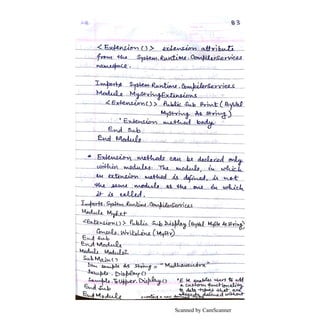 83
<Extension()> extension attribute
from the System.Runtime.CompilerServices
namespace.
Imports System.Runtime.CompilerServices
Module MyStringExtensions
<Extension()> Public Sub Print (ByVal
MyString As String)
' Extension method body
End Sub
End Module
* Extension methods can be declared only
within modules. The module, in which
an extension method is defined, is not
the same module as the one in which
it is called.
Imports.System.Runtime.CompilerServices
Module MyExt
<Extension()> Public Sub Display (ByVal MyStr As String)
Console.WriteLine (MyStr)
End Sub
End Module
Module Module2
Sub Main()
Dim sample As String = "Mathavendra"
Sample.Display()
Sample.ToUpper.Display()
* It enables users to add
End Sub
a custom functionality
to data types that are
End Module
already defined without
creating a new
Scanned by CamScanner